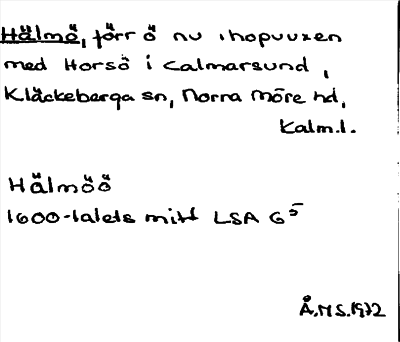 Hälmö, förr ö nu ihopvuxen
med Horsö i Calmarsund,
Kläckeberga sn, Norra Möre hd,
Kalm.l.
Hälmöö
1600-talets mitt LSA G5
Å.M.S. 1972